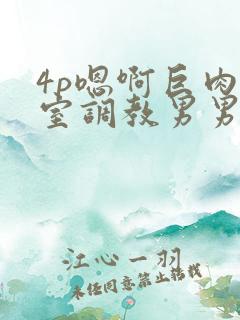 4p嗯啊巨肉
室調教男男
江心一羽
未经同意禁止转载